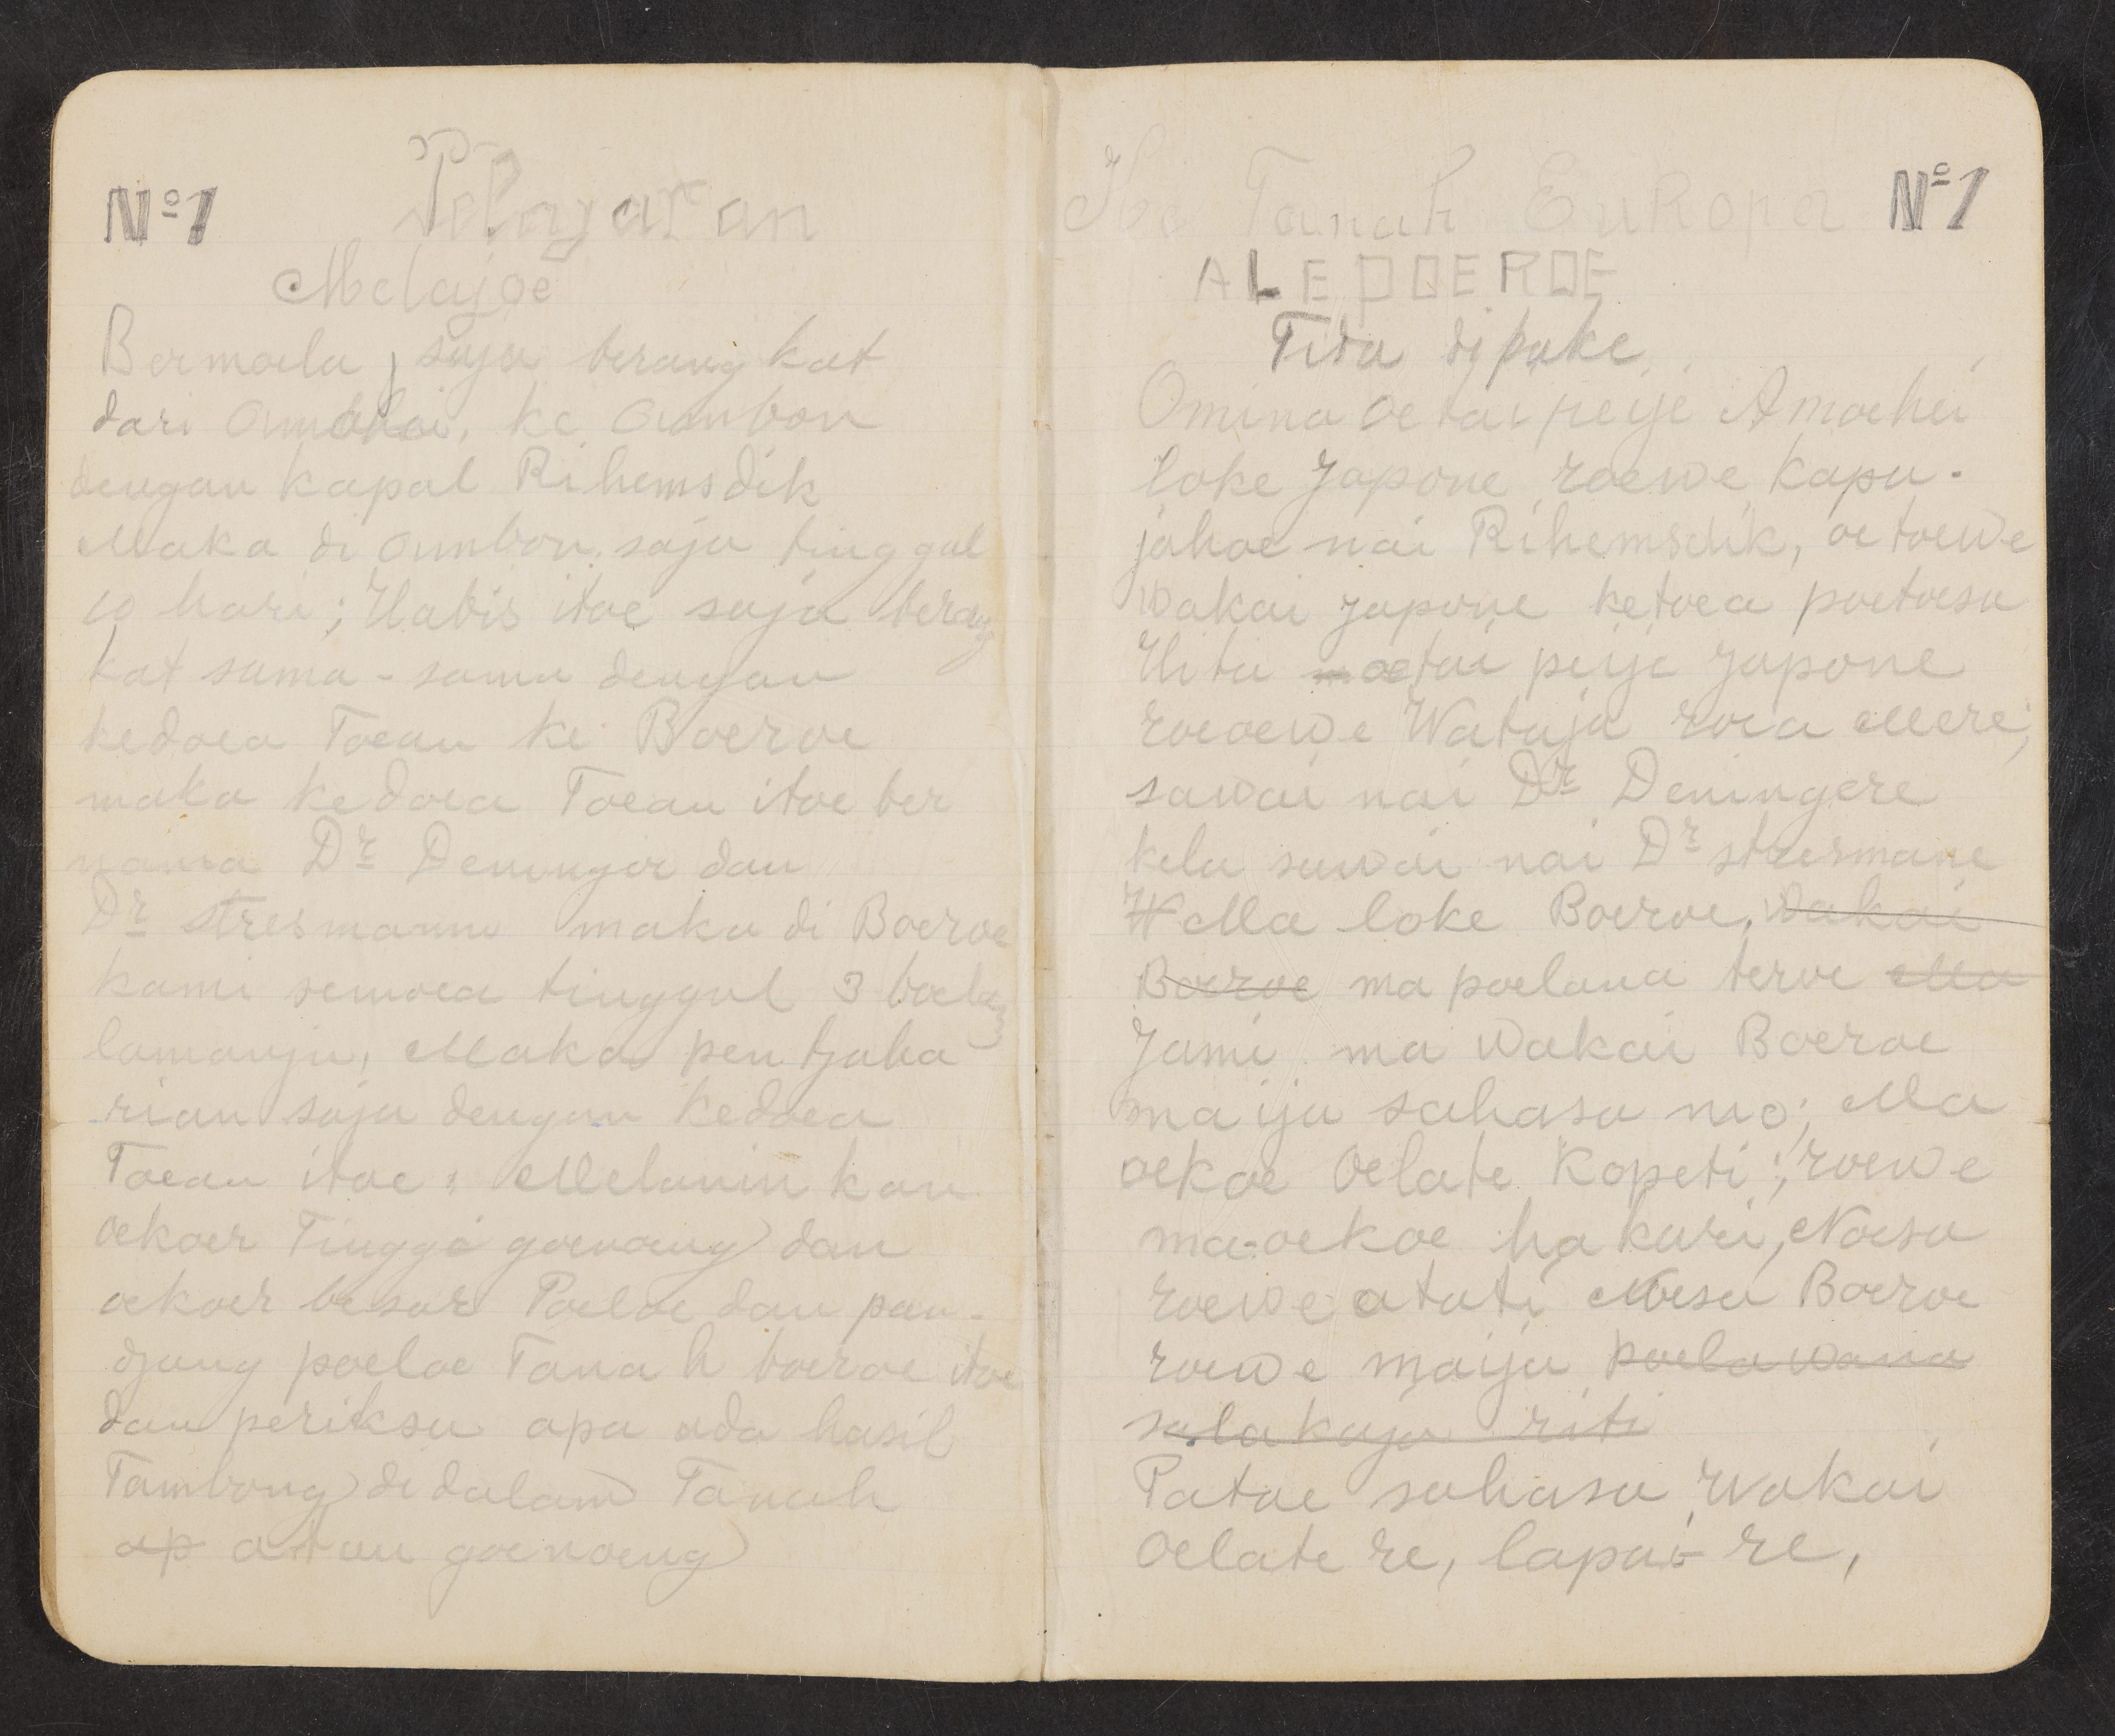 Nº 1
Pelajaran
Melajoe
Bermoela, saja berangkat
dari Amahai, ke Ambon
dengan kapal Rihemsdik
Maka di Ambon saja tinggal
10 hari; Habis itoe saja berang
kat sama-sama dengan
kedoea Toean ke Boeroe
maka kedoea Toean itoe ber
nama Dr Deninger dan
Dr Stresmann maka di Boeroe
kami semoea tinggal 3 boelang
lamanja, Maka pentjaha
rian saja dengan kedoea
Toean itoe: Melainin kan
oekoer Tinggi goenoeng dan
oekoer besar Poeloe dan pan-
djang poeloe Tanah boeroe itoe
dan periksa apa ada hasil
Tambong di dalam Tanah
ap atau goenoeng
Ke Tanah Europa Nº 1
ALEPOEROE
Tida dipake
Omina oetai peije Amahei
loke Japone roewe kapa-
jahoe nai Rihemsdik, oetoewe
wakai japone ketoea poetoesa
Hita oetai peije Japone
roeoewe Wataja roea Mere;
sawai nai Dr Deningere
kela sawai nai Dr stresmane
Ma loke Boeroe, wakai
Boeroe ma poelana teroe Ma
Jami ma wakai Boeroe
maija sahasa mo; Ma
oekoe Oelate Kopeti; roewe
ma-oekoe hakari, Noesa
roewe atati Noesa Boeroe
roewe maija poelawana
salakaja riti
Patoe sahasa wakai
Oelate re, lapai re,